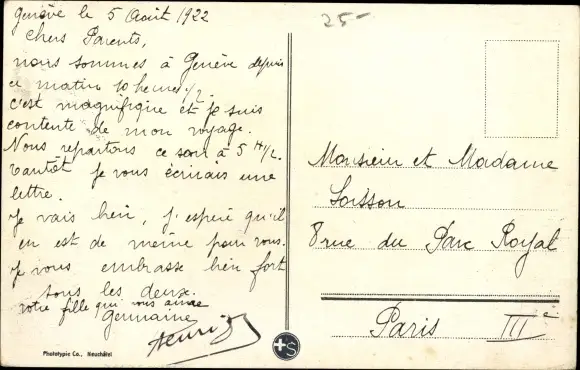 Genève le 5 Août 1922
Chers Parents,
nous sommes à Genève depuis
ce matin 10 heures 1/2.
c'est magnifique et je suis
contente de mon voyage.
Nous repartons ce soir à 5 H 1/2.
tantôt je vous écrirais une
lettre.
Je vais bien, j'espère qu'il
en est de même pour vous.
Je vous embrasse bien fort
tous les deux.
votre fille qui vous aime
Germaine
Henri
Phototypie Co., Neuchâtel
25-
+S
Monsieur et Madame
Soisson
8 rue du Parc Royal
Paris IIIe